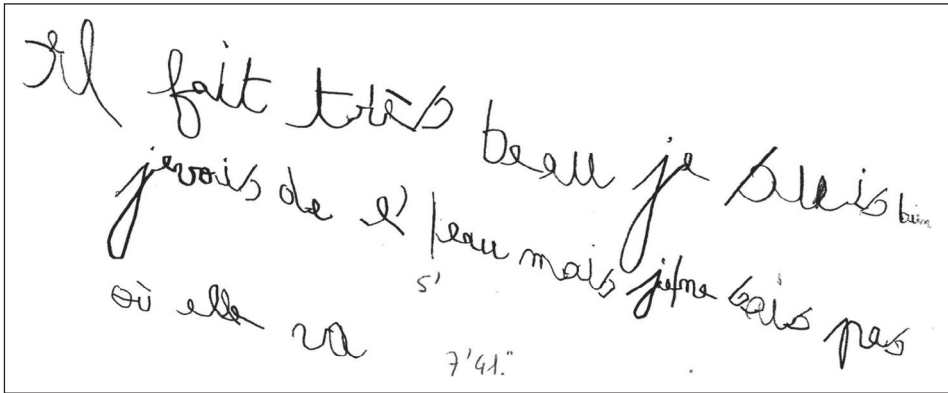 Il fait très beau je suis bien
je vois de l'eau mais je ne sais pas
5'
où elle va
7'41"